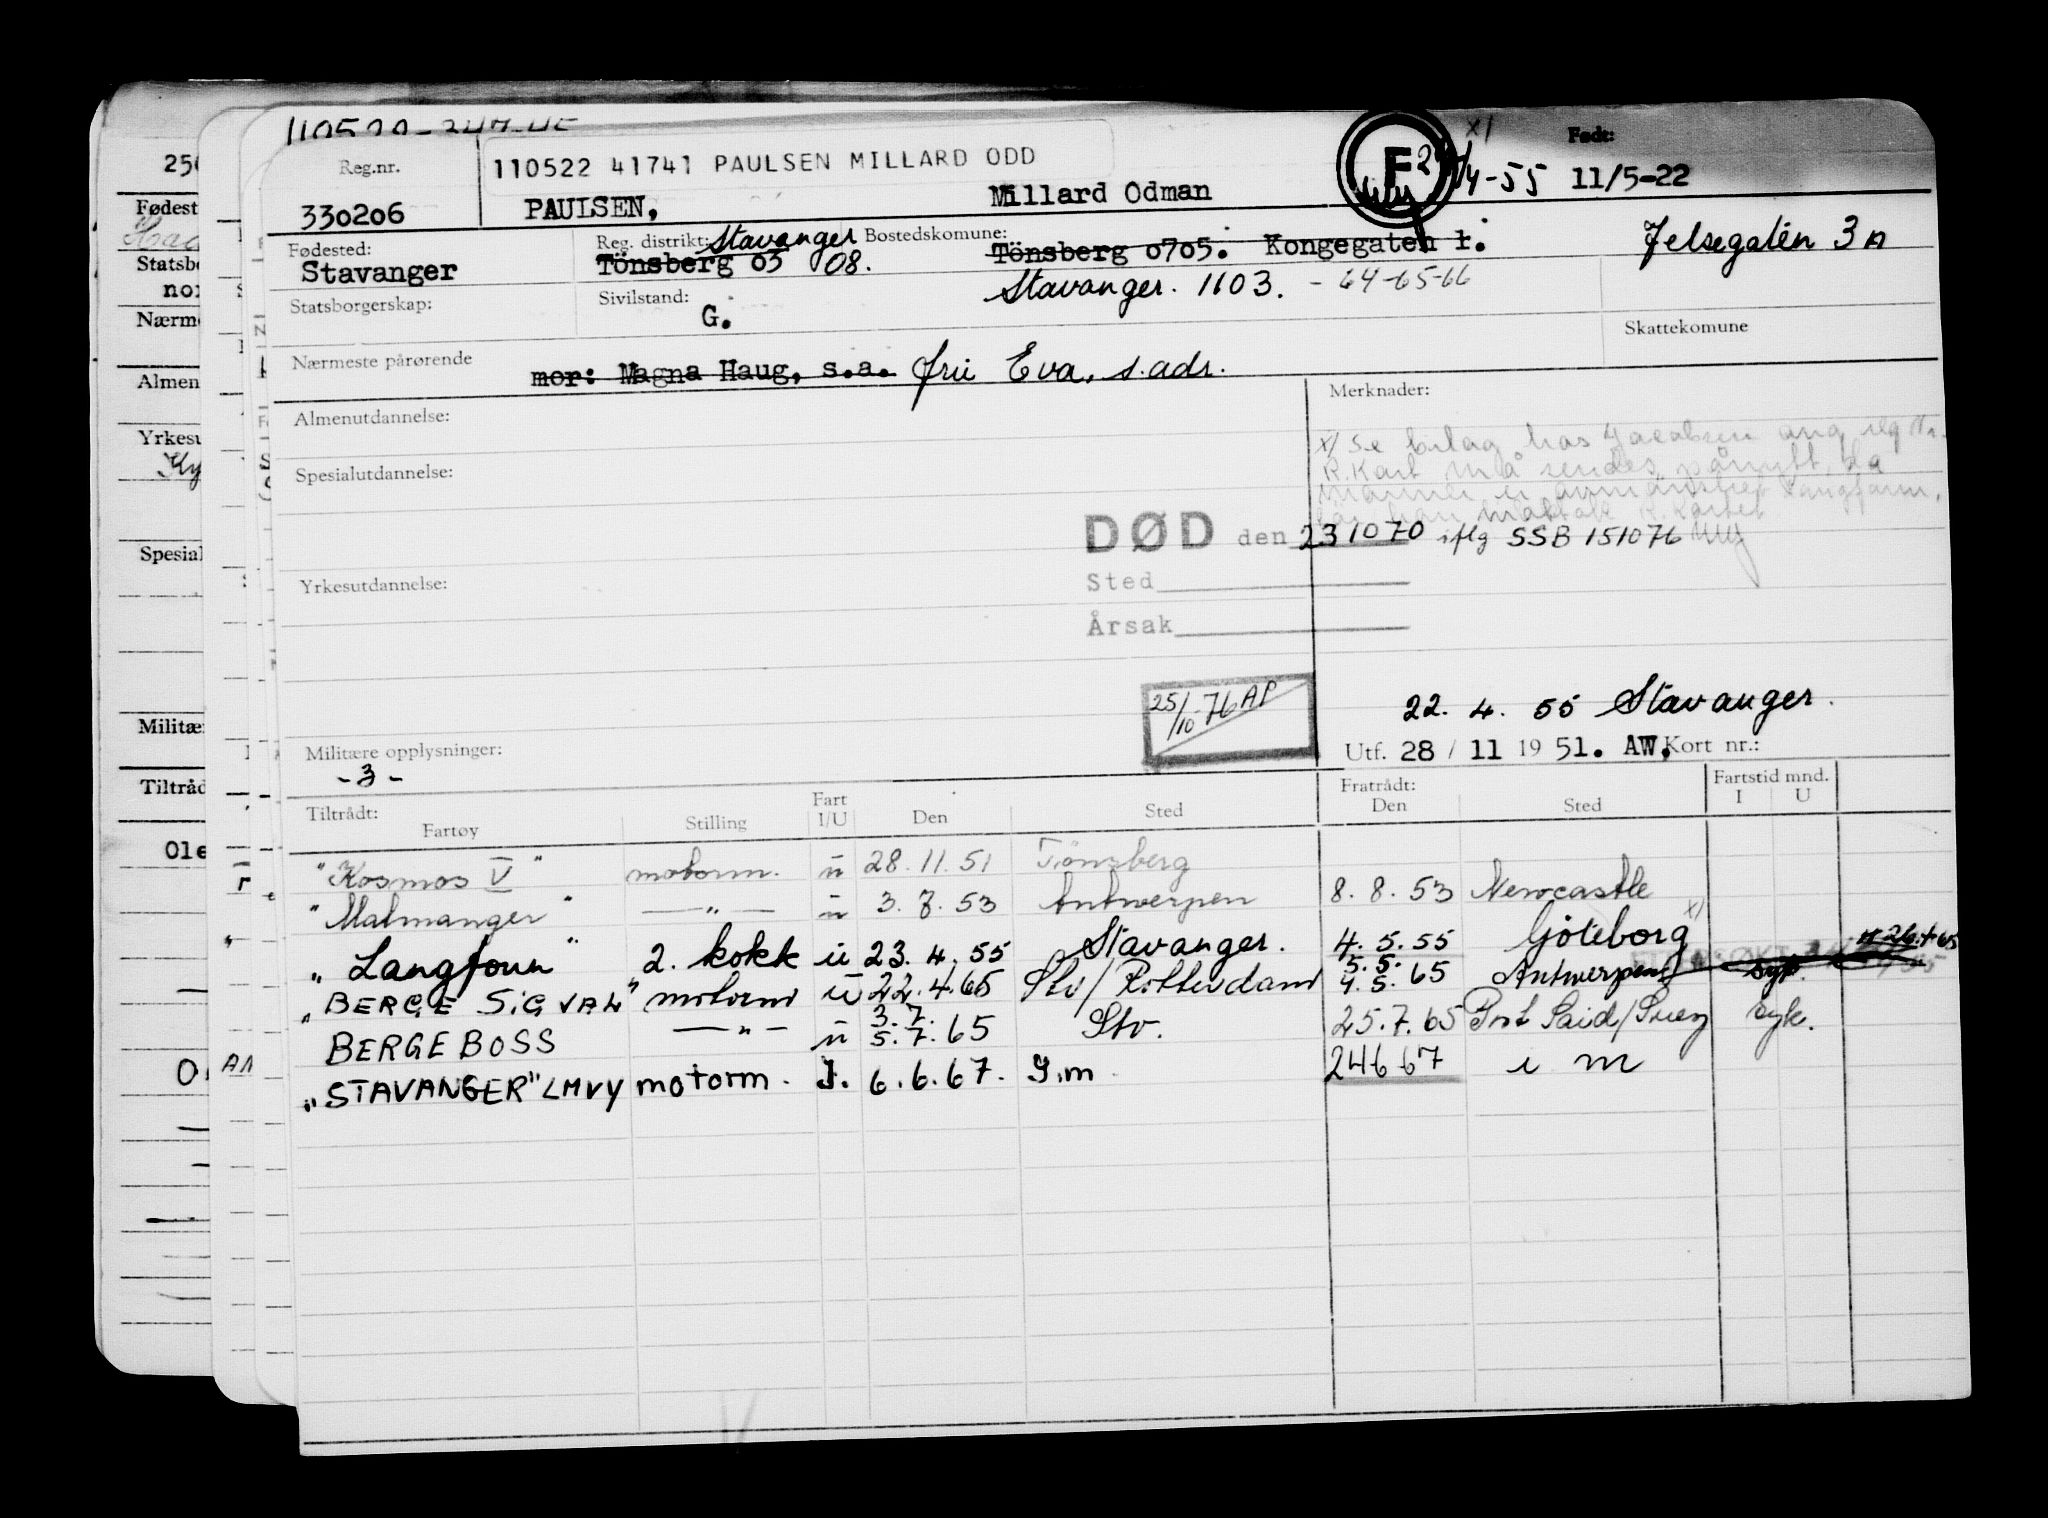 Reg.nr.
110522 41741 PAULSEN MILLARD ODD
F
4-55
Født:
11/5-22
330206
PAULSEN,
Millard Odman
Fødested:
Stavanger
Reg. distrikt: Stavanger
Tönsberg 03 08.
Bostedskomune:
Tönsberg 0705. Kongegaten 1.
Jelsegaten 3A
Stavanger. 1103. - 64-65-66
Statsborgerskap:
Sivilstand:
G.
Skattekomune
Nærmeste pårørende
mor: Magna Haug, s.a. fru Eva, s. adr.
Almenutdannelse:
Merknader:
x/ Se bilag hos Jacobsen ang reg Nr.
R.Kort må sendes
Spesialutdannelse:
DØD den 231070 iflg SSB 151076
Sted
Årsak
Yrkesutdannelse:
25/10-76 AP
22. 4. 55 Stavanger.
Utf. 28 / 11 19 51. AW. Kort nr.:
Militære opplysninger:
- 3 -
Tiltrådt:
Fartøy Stilling Fart I/U Den Sted Fratrådt: Den Sted Fartstid mnd. I U
"Kosmos V" motorm. u 28.11.51 Tönsberg
"Malmanger" — " — u 3. 7. 53 Antwerpen 8. 8. 53 Newcastle
"Langfonn" 2. kokk u 23. 4. 55 Stavanger. 4. 5. 55 Göteborg x/
"BERGE SIGVAL" motorm u 22.4.65 Stv/Rotterdam 5.5. 4.5. 65 Antwerpen syk.
BERGE BOSS — " — u 3. 7. 5. 7. 65 Stv. 25.7.65 Port Said/Suez syk.
"STAVANGER" LMVY motorm. I. 6.6.67. I.m. 24667 i m
250
Fødest
Statsb
nor
Nærm
Almen
Yrkesu
Ky
Spesial
Militær
Tiltråd
Ole